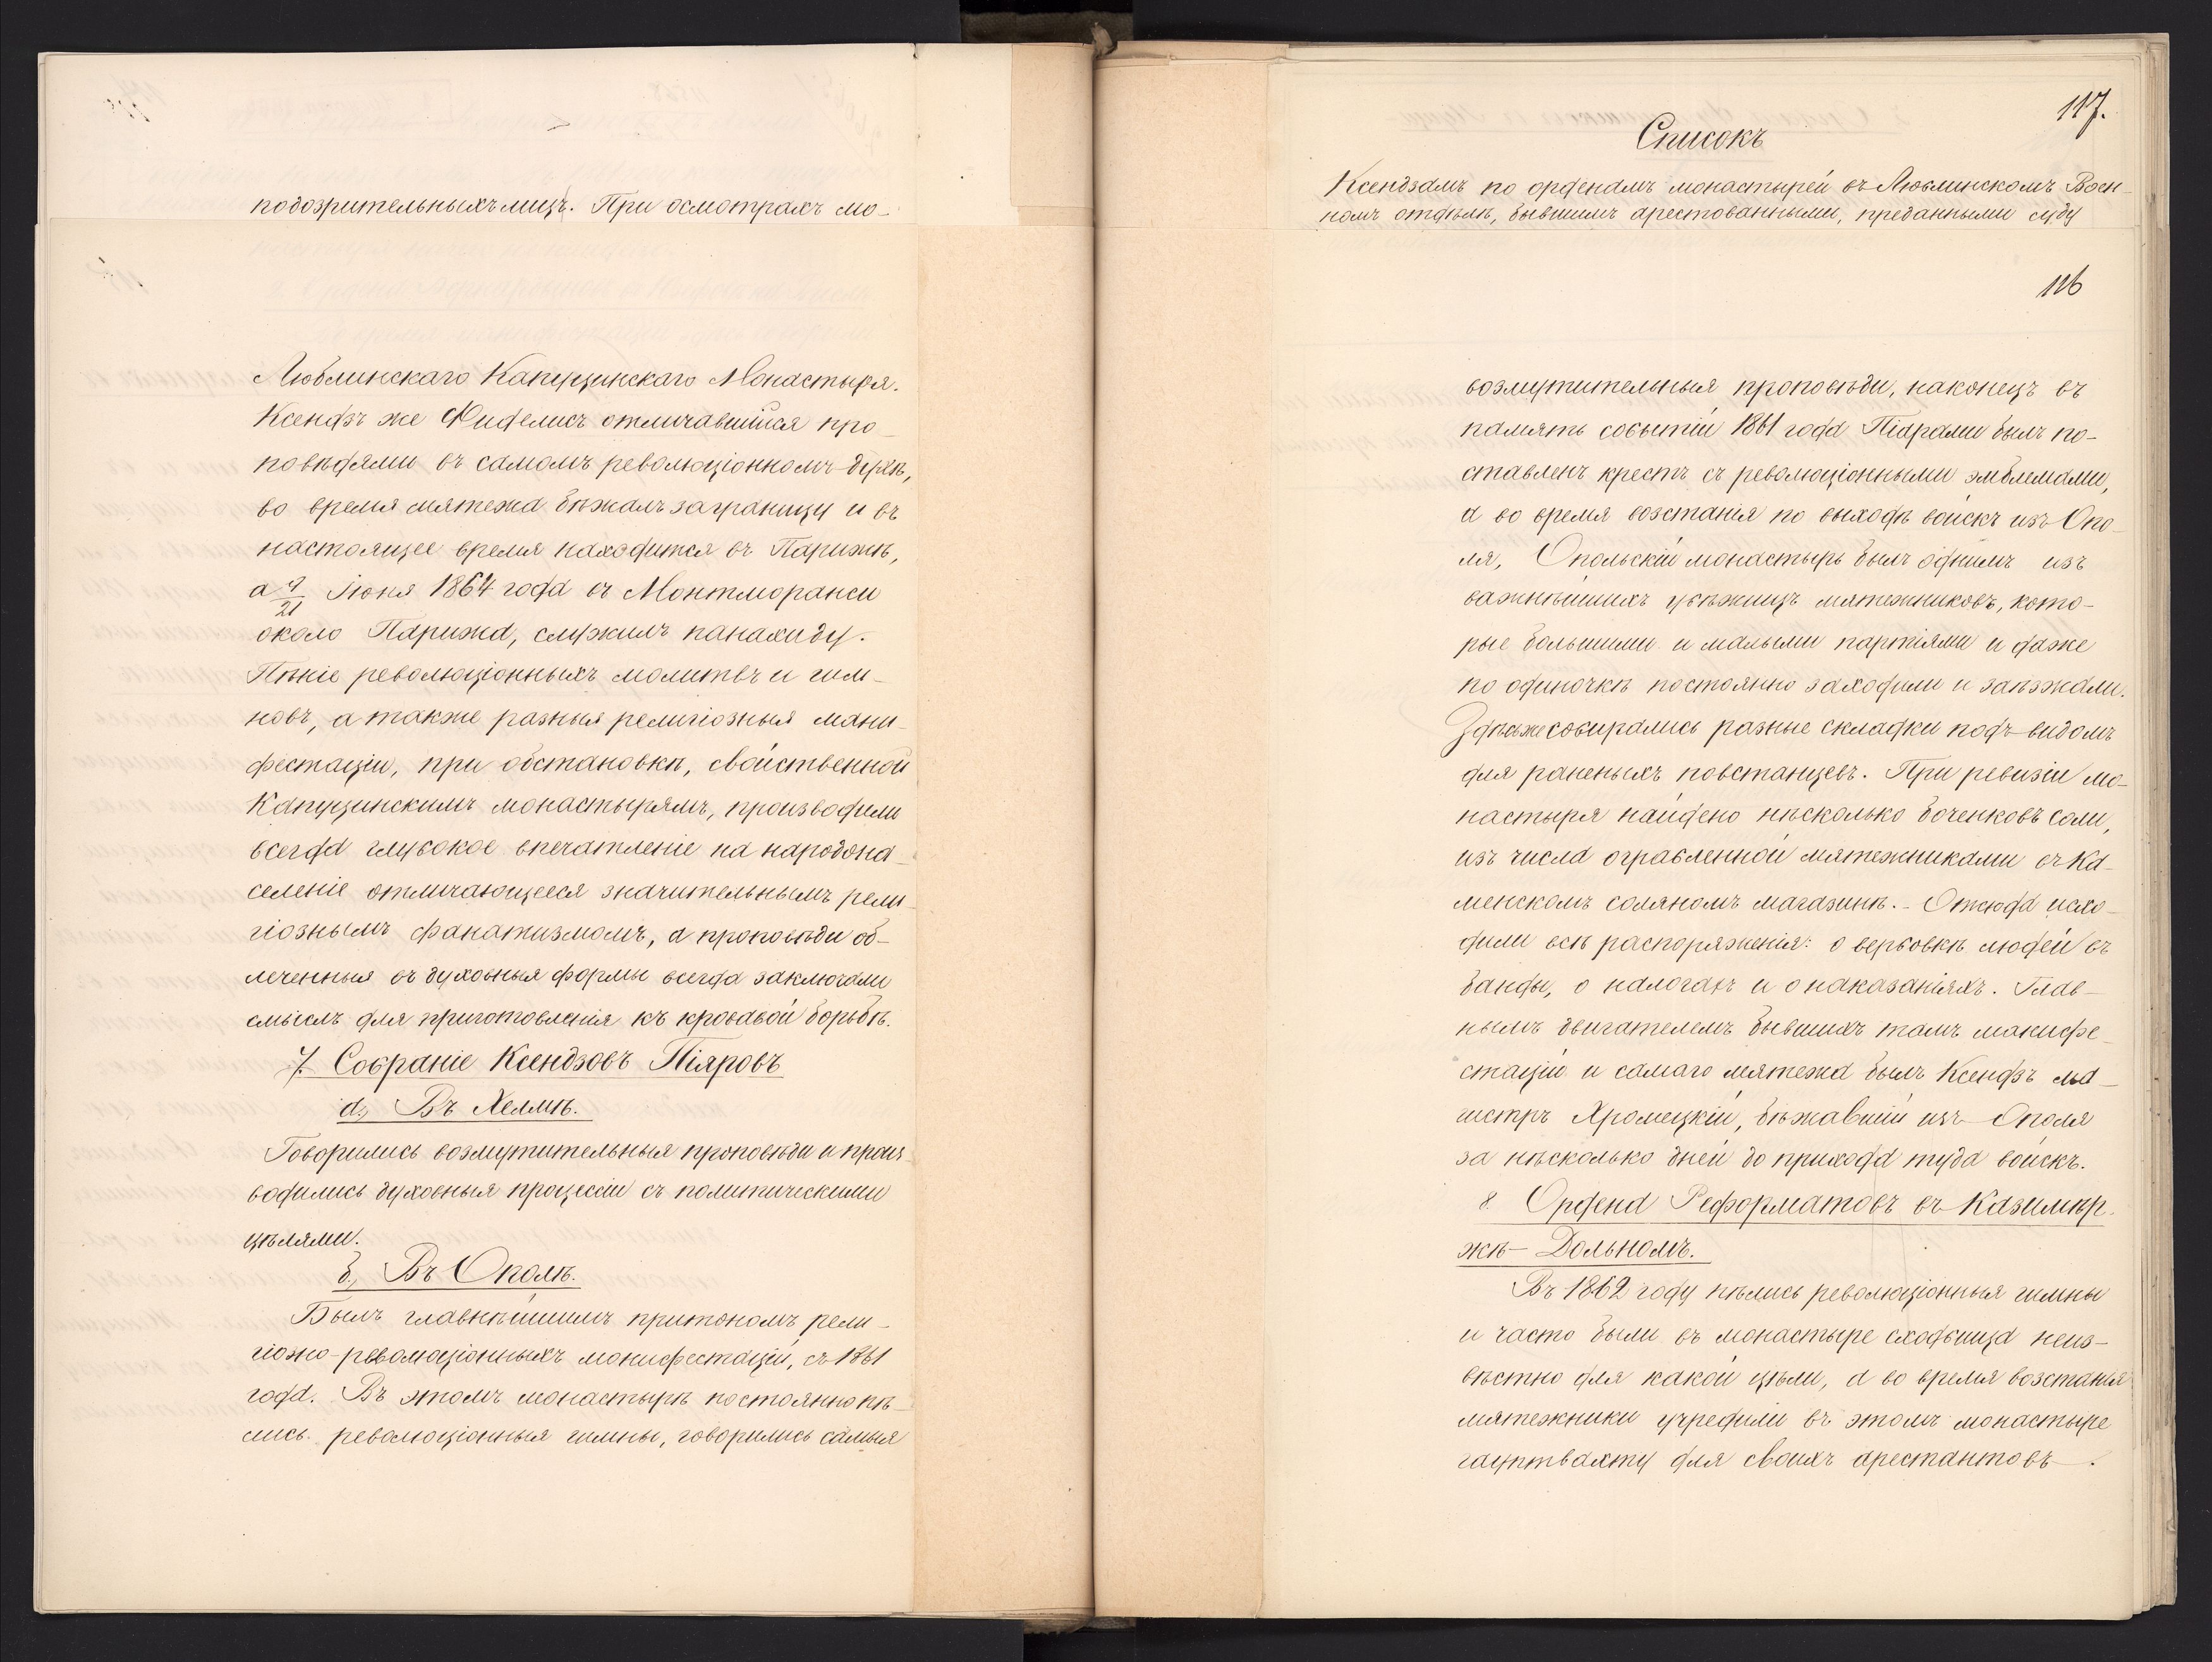 подозрительныхъ лицъ. При осмотрахъ мо-
Люблинскаго Капуцинскаго Монастыря.
Ксендзъ же Фиделисъ отличавшійся про-
повѣдями въ самомъ революціонномъ духѣ,
во время мятежа бѣжалъ заграницу и въ
настоящее время находится въ Парижѣ,
а 9/21 Іюня 1864 года въ Монтморанси
около Парижа, служилъ панахиду.
Пѣніе революціонныхъ молитвъ и гим-
новъ, а также разныя религіозныя мани-
фестаціи, при обстановкѣ, свойственной
Капуцинскимъ монастырямъ, производили
всегда глубокое впечатленіе на народона-
селеніе отличающееся значительнымъ рели-
гіознымъ фанатизмомъ, а проповѣди об-
леченныя въ духовныя формы всегда заключали
смыслъ для приготовленія къ кровавой борьбѣ.
7. Собраніе Ксендзовъ Піяровъ
а., Въ Хелмѣ.
Говорились возмутительныя проповѣди и проиs-
водились духовныя процессіи съ политическими
цѣлями.
б., Въ Ополѣ.
Былъ главнѣйшимъ притономъ рели-
гіозно-революціонныхъ монифестацій, съ 1861
года. Въ этомъ монастырѣ постоянно пѣ-
лись революціонныя гимны, говорились самыя
117.
Списокъ
Ксендзамъ по орденамъ монастырей въ Люблинскомъ Воен-
номъ отдѣлѣ, бывшимъ арестованными, преданными суду
116
возмутительныя проповѣди, наконецъ въ
память событій 1861 года Піарами былъ по-
ставленъ крестъ съ революціонными эмблемами,
а во время возстанія по выходѣ войскъ изъ Опо-
ля, Опольскій монастырь былъ однимъ изъ
важнѣйшихъ убѣжищъ мятежниковъ, кото-
рые большими и малыми партіями и даже
по одиночкѣ постоянно заходили и заѣзжали.
Здѣсьже собирались разные складки подъ видомъ
для раненыхъ повстанцевъ. При ревизіи мо-
настыря найдено нѣсколько боченковъ соли,
изъ числа ограбленной мятежниками въ Ка-
менскомъ соляномъ магазинѣ. - Отсюда исхо-
дили всѣ распоряженія: о вербовкѣ людей въ
банды, о налогахъ и о наказаніяхъ. Глав-
нымъ двигателемъ бывшихъ тамъ манифе-
стацій и самаго мятежа былъ Ксендзъ ма-
гистръ Хромецкій, бѣжавшій изъ Ополя
за нѣсколько дней до прихода туда войскъ.
8. Ордена Реформатовъ въ Казимѣр-
жѣ-Дольномъ.
Въ 1862 году пѣлись революціонныя гимны
и часто были въ монастыре сходбища неиз-
вѣстно для какой цѣли, а во время возстанія
мятежники учредили въ этомъ монастыре
гауптвахту для своихъ арестантовъ.